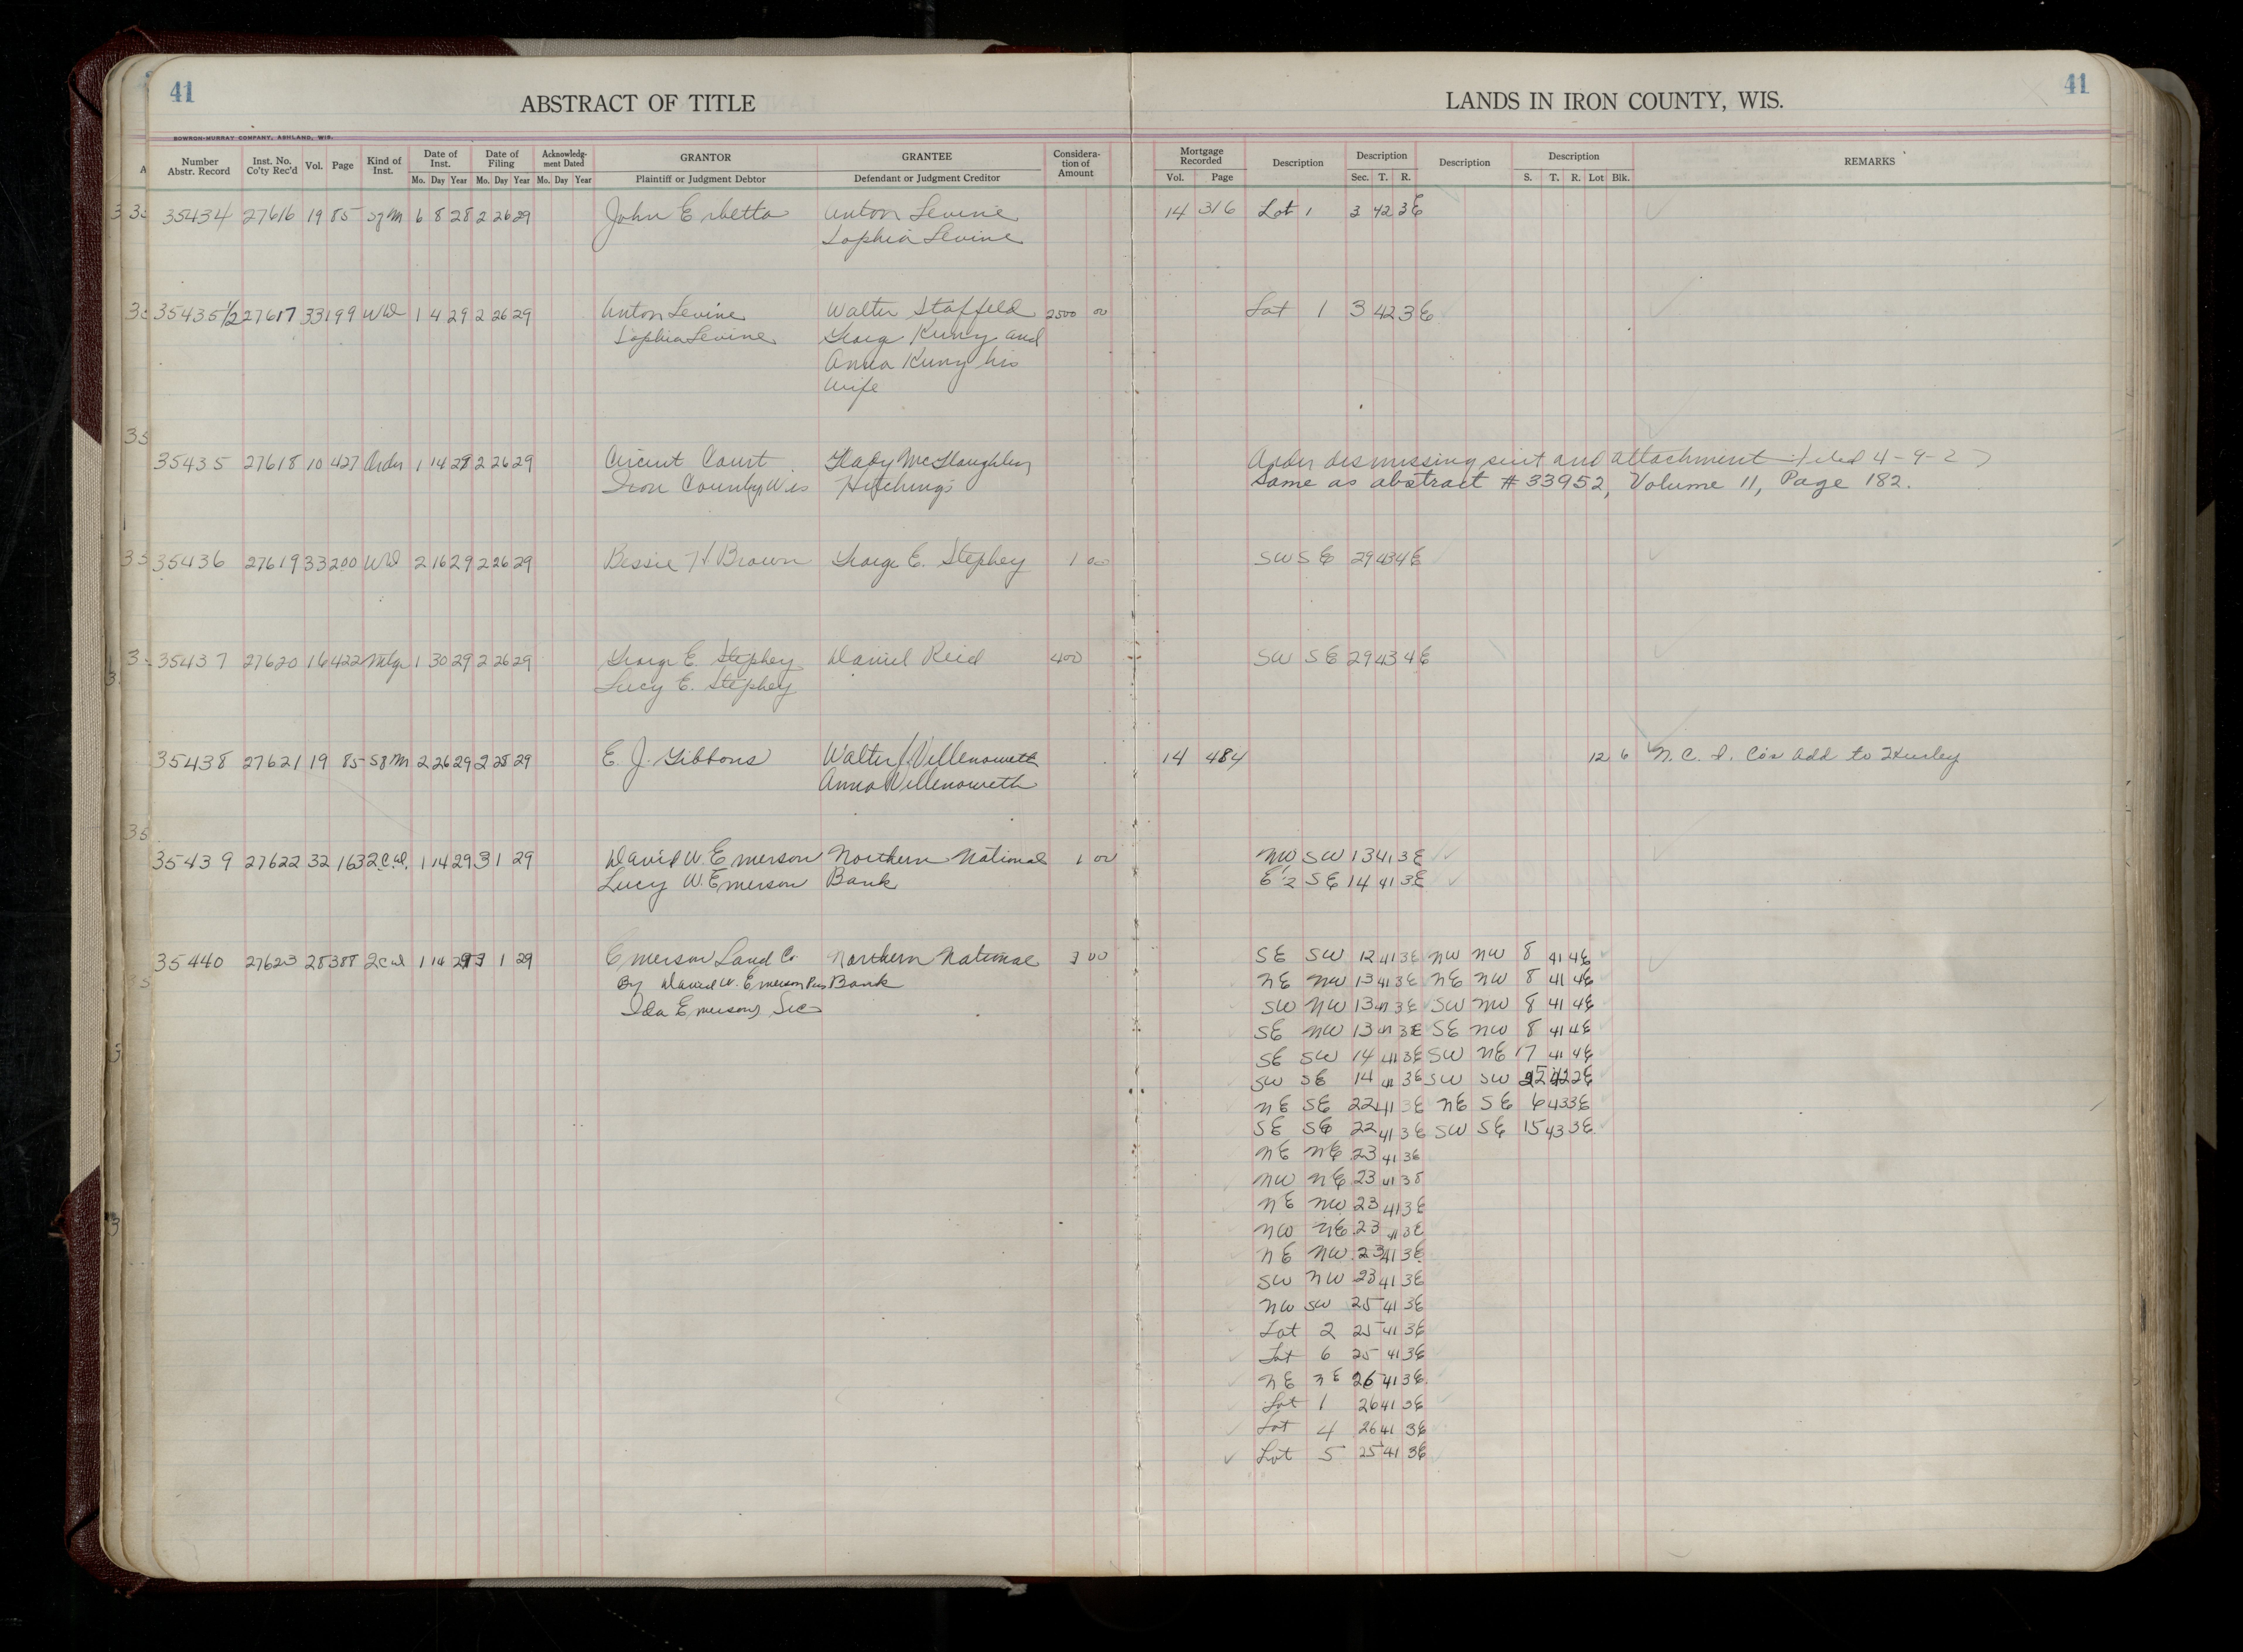 41
ABSTRACT OF TITLE
LANDS IN IRON COUNTY, WIS.
41
BOWRON-MURRAY COMPANY, ASHLAND, WIS.
Number Abstr. Record Inst. No. Co'ty Rec'd Vol. Page Kind of Inst. Date of Inst. Mo. Day Year Date of Filing Mo. Day Year Acknowledg-ment Dated Mo. Day Year GRANTOR Plaintiff or Judgment Debtor GRANTEE Defendant or Judgment Creditor Considera-tion of Amount Mortgage Recorded Vol. Page Description Description Sec. T. R. Description Description S. T. R. Lot Blk. REMARKS
35434 27616 19 85 SgM 6 8 28 2 26 29 John Erbetta Anton Levine 14 316 Lot 1 3 42 3E
Sophia Levine
35435 1/2 27617 33 199 WD 1 4 29 2 26 29 Anton Levine Walter Staffeld 2500 00 Lot 1 3 42 3E
Sophia Levine George Kuny and
Anna Kuny his
wife
35435 27618 10 427 Order 1 14 29 2 26 29 Circuit Court Glady McLaughlin Order dismissing suit and attachment filed 4-9-27
Iron County Wis Hitchings Same as abstract # 33952, Volume 11, Page 182.
35436 27619 33 200 WD 2 16 29 2 26 29 Bessie H Brown George E. Stephey 1 00 SW SE 29 43 4E
35437 27620 16 422 Mtge 1 30 29 2 26 29 George E. Stephey Daniel Reid 400 SW SE 29 43 4E
Lucy E. Stephey
35438 27621 19 85 SgM 2 26 29 2 28 29 E. J. Gibbons Walter J Villenoweth 14 484 12 6 N. C. I. Co's Add to Hurley
Anna Villenoweth
35439 27622 32 163 2C.D. 1 14 29 3 1 29 David W. Emerson Northern National 1 00 NW SW 13 41 3E
Lucy W. Emerson Bank E 1/2 SE 14 41 3E
35440 27623 28 388 2CD 1 14 29 3 1 29 Emerson Land Co. Northern National 3 00 SE SW 12 41 3E NW NW 8 41 4E
By David W. Emerson Pres Bank NE NW 13 41 3E NE NW 8 41 4E
Ida Emerson, Sec SW NW 13 41 3E SW NW 8 41 4E
SE NW 13 41 3E SE NW 8 41 4E
SE SW 14 41 3E SW NE 17 41 4E
SW SE 14 41 3E SW SW 42 2E
NE SE 22 41 3E NE SE 6 43 3E
SE SE 22 41 3E SW SE 15 43 3E
NE NE 23 41 3E
NW NE 23 41 3E
NE NW 23 41 3E
NW NE 23 41 3E
NE NW 23 41 3E
SW NW 23 41 3E
NW SW 25 41 3E
Lot 2 25 41 3E
Lot 6 25 41 3E
NE NE 26 41 3E
Lot 1 26 41 3E
Lot 4 26 41 3E
Lot 5 25 41 3E